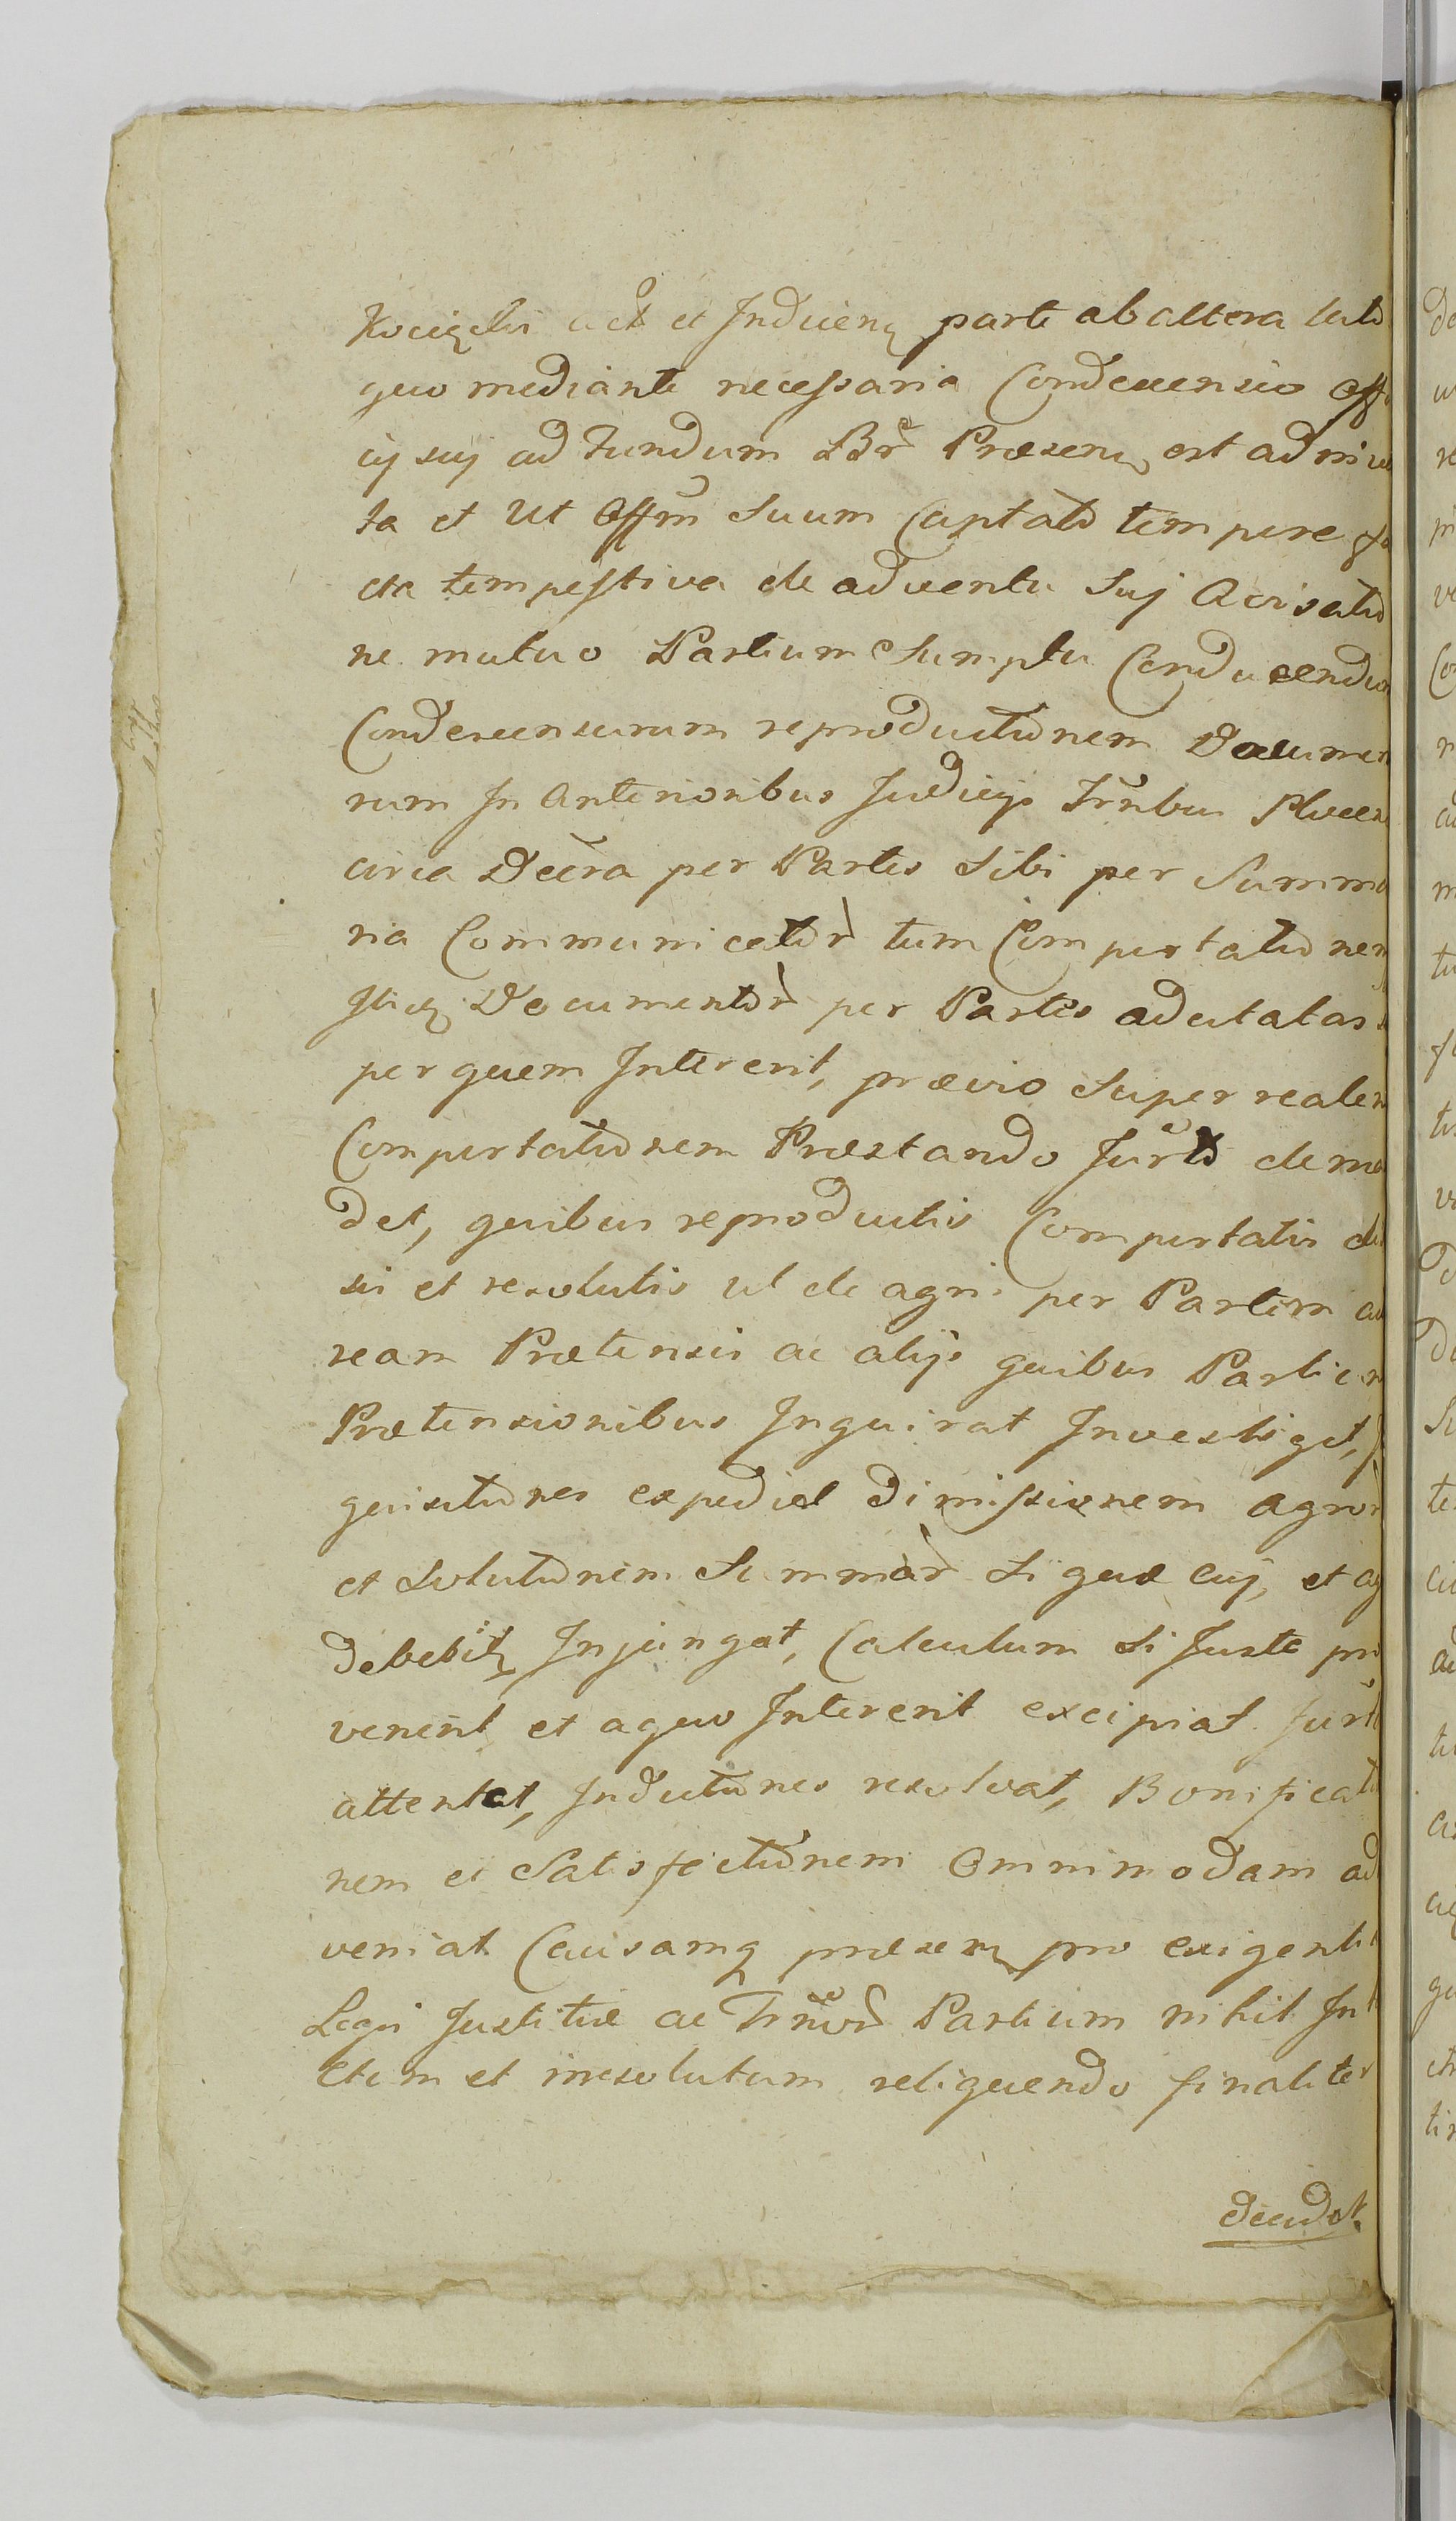 et Inducen parte ab altera lato
quo mediante necessaria Condescensio Offi
cij sui ad Fundum Bnr Praesen est admis
sa et Ut Offm Suum Captato tempore fa
cta tempestiva de adventu Suj Avisatio
ne mutuo Partium Sumptu Conducendum
Condescensurum reproductionem Documen
rum In Anterioribus Judicijs Trnbus
circa Decra per Partes Sibi per Summa
ria Communicator tum Comportationem
Documentor per Partes ad citatas
per quem Intererit, praevio Super realem
Comportationem Praestando Jurto deman
det, quibus reproductis Comportatis
sis et resolutis ut de agri per Partem ac
ream Praetensis ac alijs quibus Partium
Praetensionibus Inquirat Investiget,
quisitiones expediat Dimissionem agror
et Solutionem Summar Si quae Cuj, et aq
debebit Injungat, Calculum Si Juste pro
venerit et a quo Intererit excipiat Jurto
attentet, Inductiones resolvat, Bonificatio
nem et Satisfactionem Omnimodam ad
veniat Causamq praesen pro exigentia
Legis Justitiae ac Partium nihil Inta
ctum et irresolutum relinquendo finaliter
decidat.